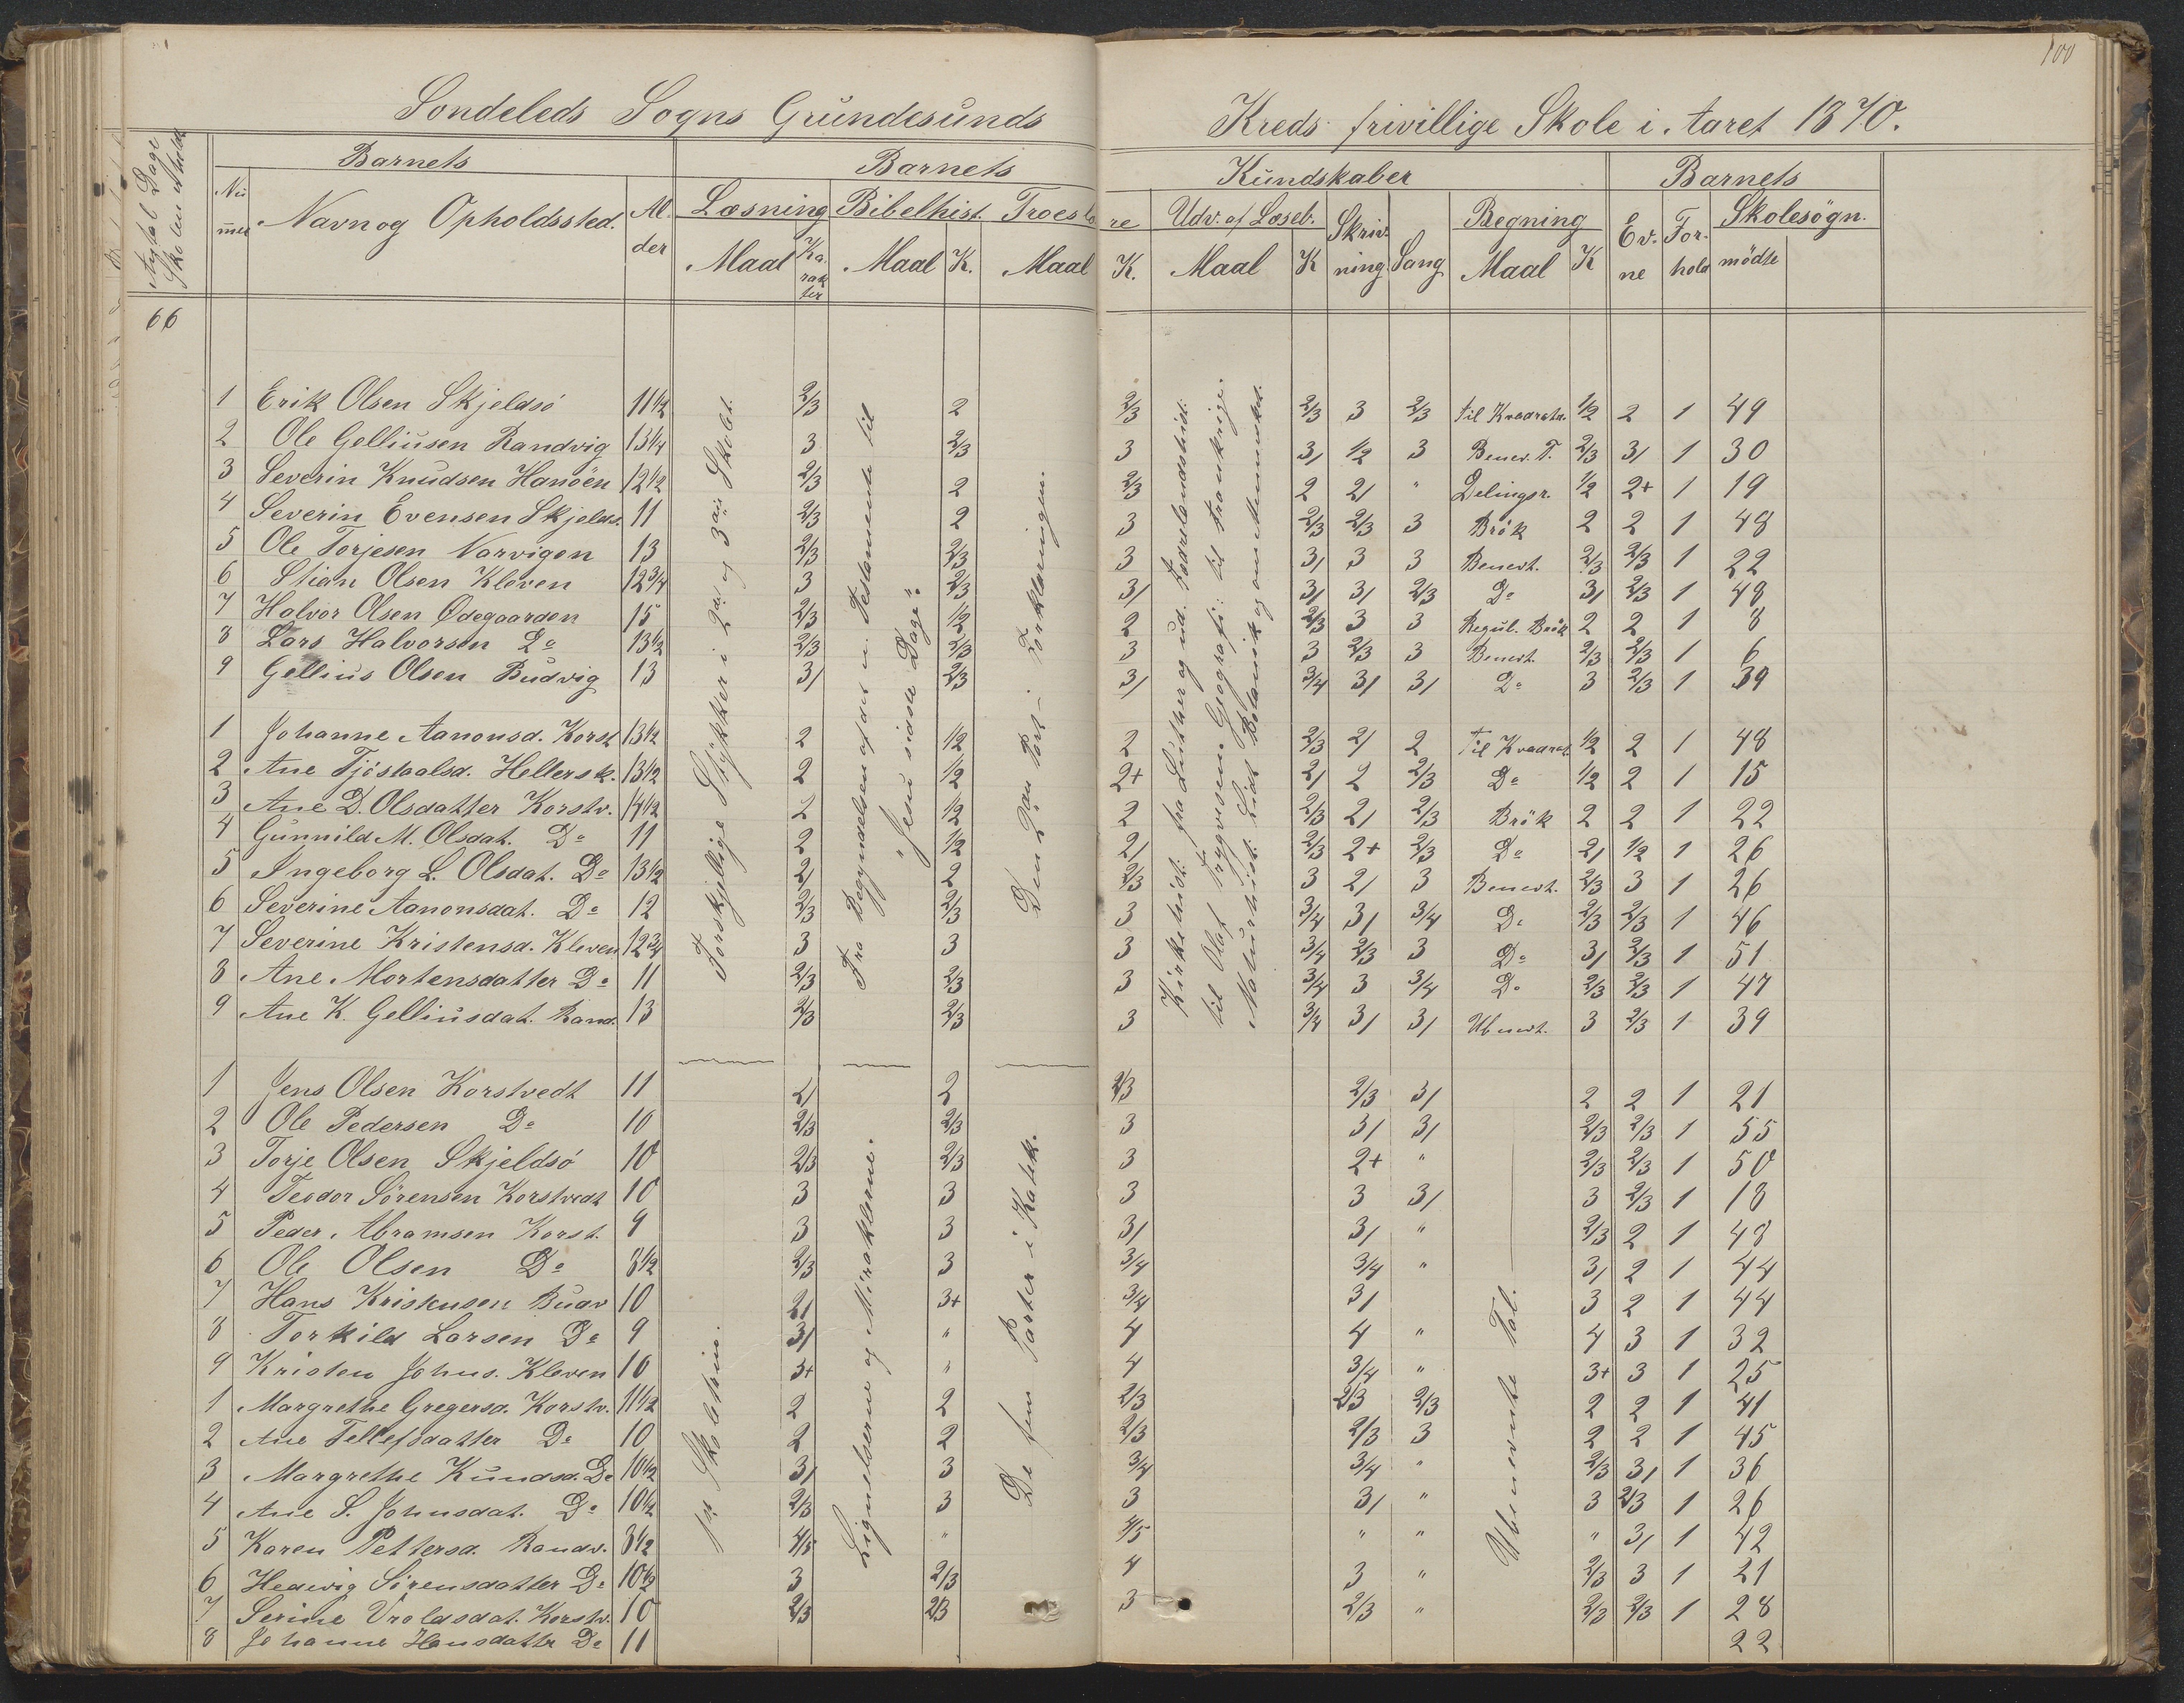 100
Sondeleds Sogns Grundesunds Kreds frivillige Skole i Aaret 1870.
Antal Dage Skolen er holdt
Barnets Barnets Kundskaber Barnets
Nummer Navn og Opholdssted. Alder Læsning Bibelhist. Troeslære Udv. af Læseb. Skrivning Sang Regning Evne Forhold Skolesögn.
Maal Karakter Maal K. Maal K. Maal K Maal K mödte
66
1 Erik Olsen Skjeldsö 11 1/2 2/3 2 2/3 2/3 3 2/3 til Kvadratr. 1/2 2 1 49
2 Ole Gelliusen Randvig 13 1/4 3 2/3 3 3/ 1/2 3 Benev. T. 2/3 3/ 1 30
3 Severin Knudsen Hanöen 12 1/2 2/3 2 2/3 2 2/ " Delingsr. 1/2 2+ 1 19
4 Severin Evensen Skjelds. 11 2/3 2 3 2/3 2/3 3 Brök 2 2 1 48
5 Ole Torjesen Norvigen 13 2/3 2/3 3 3/ 3 3 Benevt. 2/3 2/3 1 22
6 Stian Olsen Kleven 12 3/4 3 2/3 3/ 3/ 3/ 2/3 Do 3/ 2/3 1 48
7 Halvor Olsen Ødegaarden 15 2/3 1/2 2 2/3 3 3 Regul. Brök 2 2 1 8
8 Lars Halvorsen Do 13 1/2 2/3 2/3 3 3 2/3 3 Benevt. 2/3 2/3 1 6
9 Gellius Olsen Budvig 13 3/ 2/3 3/ 3/4 3/ 3/ Do 3 2/3 1 39
1 Johanne Aanonsd. Korst 13 1/2 2 1/2 2 2/3 2/ 2 Til Kvadrat. 1/2 2 1 48
2 Ane Tjöstaalsd. Hellersk. 13 1/2 2 1/2 2+ 2/ 2 2/3 Do 1/2 2 1 15
3 Ane D. Olsdatter Korstv. 14 1/2 2 1/2 2 2/3 2/ 2/3 Brök 2 2 1 22
4 Gunnild M. Olsdat. Do 11 2 1/2 2/ 2/3 2+ 2/3 Do 2/ 1/2 1 26
5 Ingeborg L. Olsdat. Do 13 1/2 2/ 2 2/3 3 2/ 3 Benevt. 2/3 3 1 26
6 Severine Aanonsdat. Do 12 2/3 2/3 3 3/4 3/ 3/4 Do 2/3 2/3 1 46
7 Severine Kristensd. Kleven 12 3/4 3 3 3 3/4 2/3 3 Do 3/ 2/3 1 51
8 Ane Mortensdatter Do 11 2/3 2/3 3 3/4 3 3/4 Do 2/3 2/3 1 47
9 Ane K. Gelliusdat. Rand. 13 2/3 2/3 3 3/4 3/ 3/ Ubenevt. 3 2/3 1 39
Forskjellige Stykker i 2den og 3die Skolet.
Fra Begyndelsen af det n. Testamente til
"Jesu sidste Dage".
Den 2den Part i Forklaringen.
Kirkehist. fra Luther og ud. Fædrelandshist.
til Olaf Trygvesen. Geografi: til Frankrige.
Naturhist. Lidt Botanik og om Mennesket.
1 Jens Olsen Korstvedt 11 2/ 2 2/3 2/3 3/ 2 2 1 21
2 Ole Pedersen Do 10 2/3 2/3 3 3/ 3/ 2/3 2/3 1 55
3 Torje Olsen Skjeldsö 10 2/3 2/3 3 2+ " 2/3 2/3 1 50
4 Teodor Sörensen Korstvedt 10 3 3 3 3 3/ 3 2/3 1 18
5 Peder Abramsen Korst. 9 3 3 3/ 3/ " 2/3 2 1 48
6 Ole Olsen Do 8 1/2 2/3 3 3/4 3/4 " 3/ 2 1 44
7 Hans Kristensen Budv 10 2/ 3+ 3/4 3/ 3 2 1 44
8 Torkild Larsen Do 9 3/ " 4 4 " 4 3 1 32
9 Kristen Johns. Kleven 10 3+ " 4 3/4 " 3+ 3 1 25
1 Margrethe Gregersd. Korstv. 11 1/2 2 2 2/3 2/3 2/3 2 2 1 41
2 Ane Tellefsdatter Do 10 2 2 2/3 2/3 3 2 2 1 45
3 Margrethe Knudsd. Do 10 1/2 3/ 3 3/4 3/4 " 2/3 3/ 1 36
4 Ane S. Johnsdat. Do 10 1/2 2/3 3 3 3/ " 3 2/3 1 26
5 Karen Pettersd. Randv. 8 1/2 4/5 " 4/5 " " " 3/ 1 42
6 Hedevig Sörensdatter Do 10 1/2 3 2/3 4 3 " 2/3 3 1 21
7 Serine Vraldsdat. Korstv. 10 2/3 2/3 3 2/3 " 2/3 2/3 1 28
8 Johanne Hansdatter Do 11 22
Lignelserne og Miraklerne.
De fem Parter i Katek.
Ubenevnte Tal.